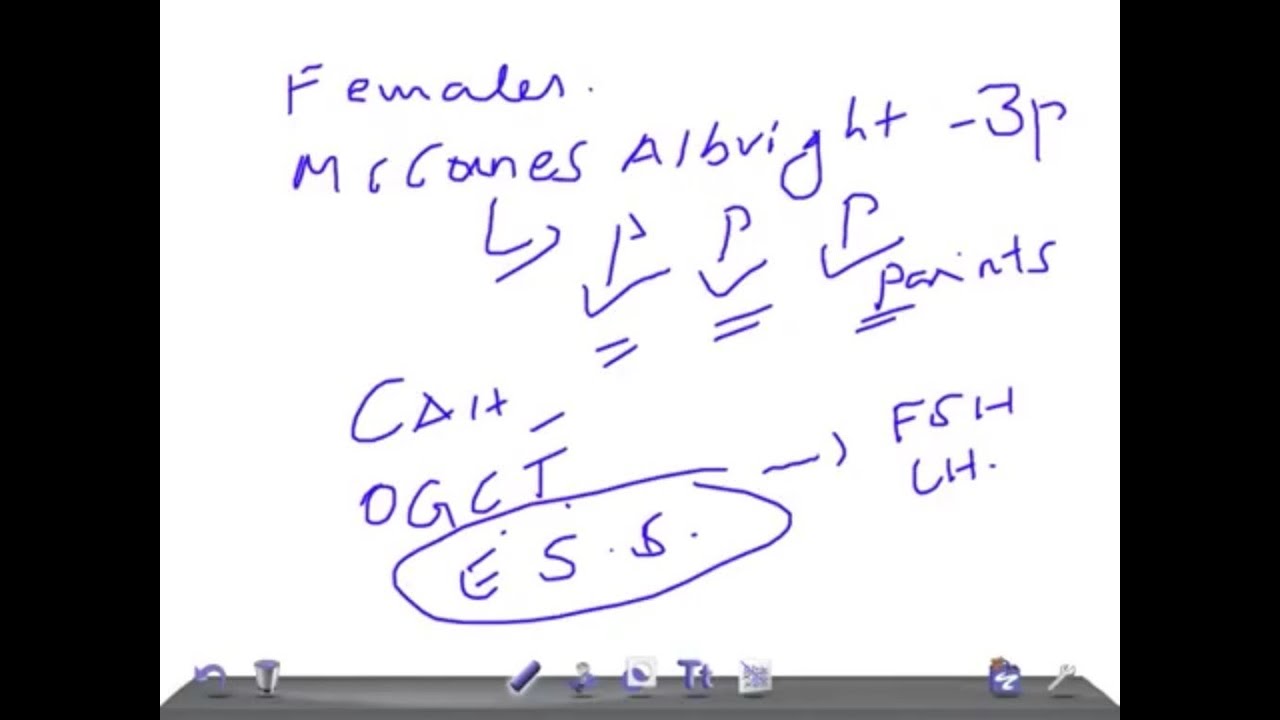 Females.
McCunes Albright - 3p
P P P
paints
CAH -
FSH
OGCT
LH.
E S. S.